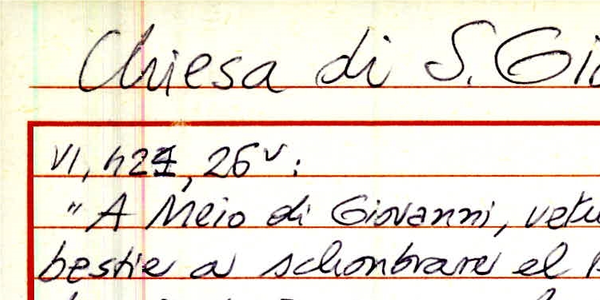 Chiesa di S. Gio
VI, 424, 26v:
"A Meio di Giovanni, vetu
bestie a schonbrare el